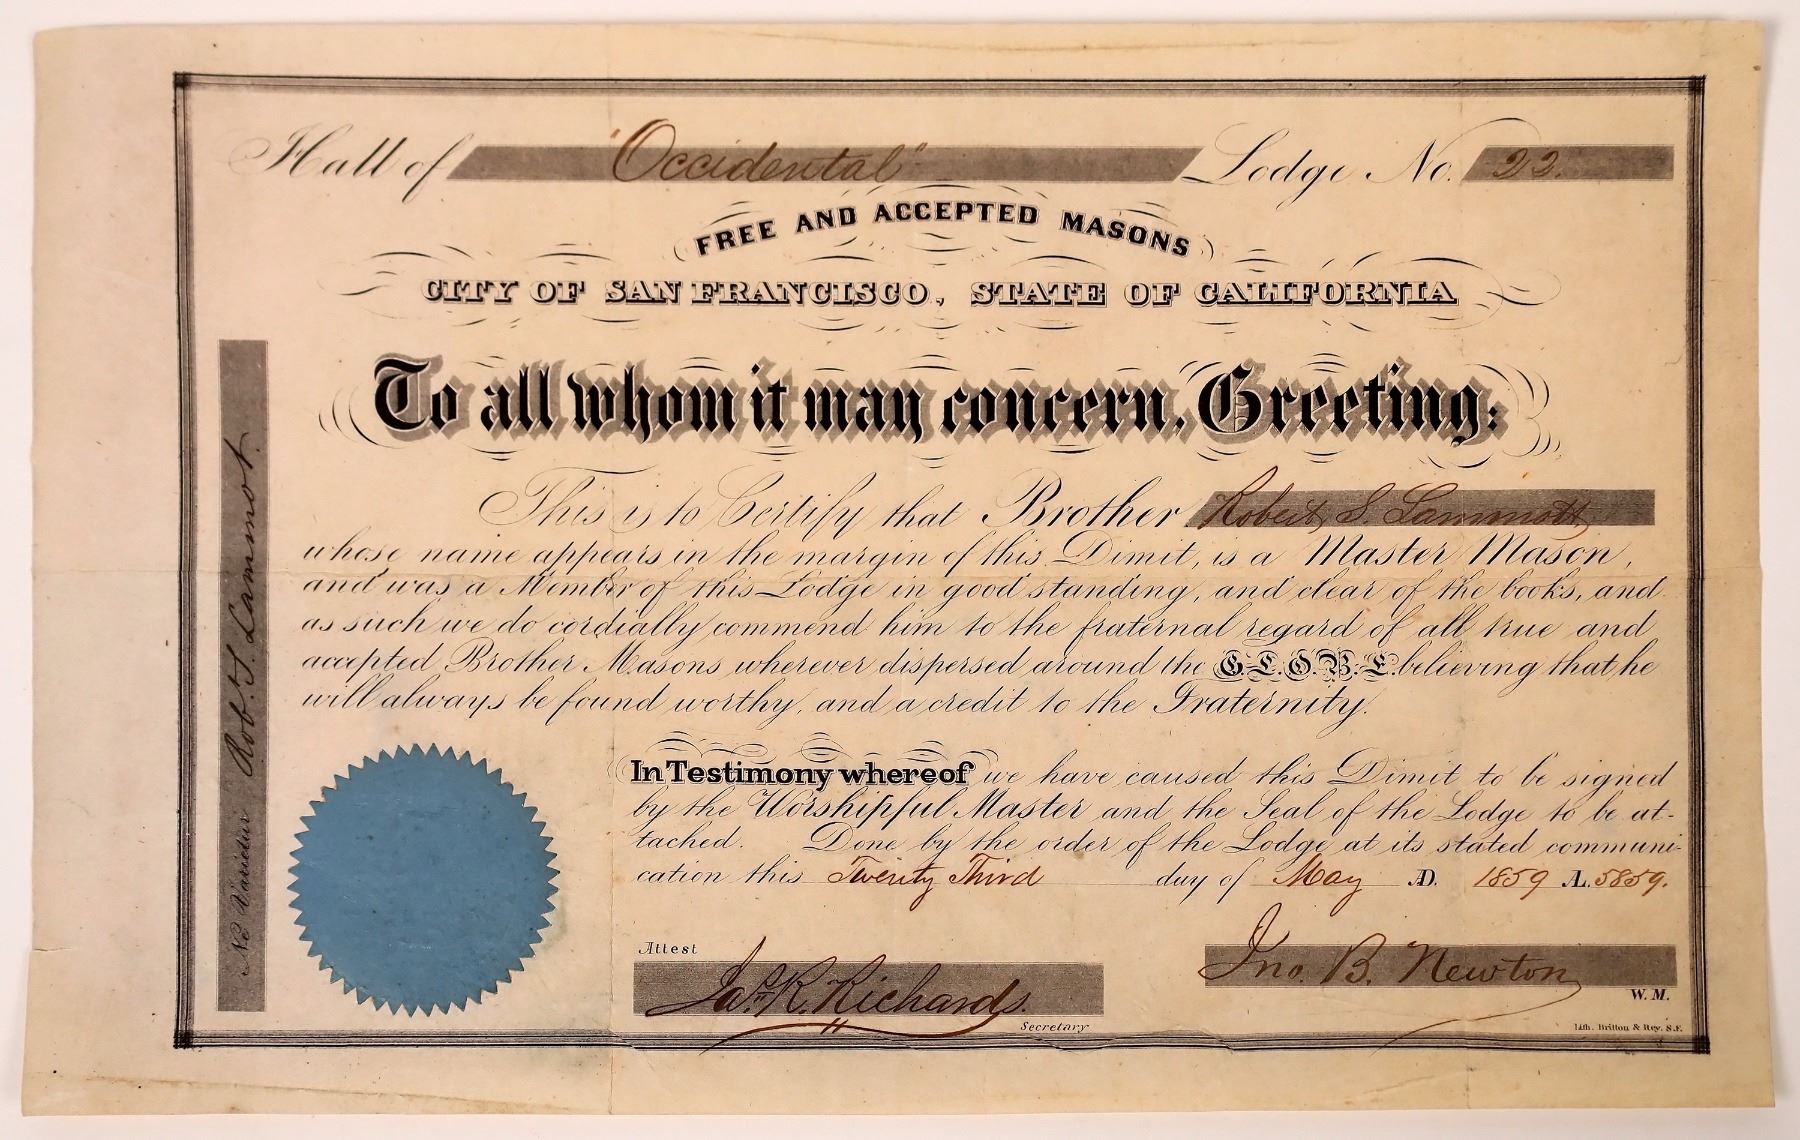 Hall of "Occidental" Lodge No. 22.
FREE AND ACCEPTED MASONS
CITY OF SAN FRANCISCO, STATE OF CALIFORNIA
To all whom it may concern, Greeting:
This is to Certify that Brother Robert S. Lammott
whose name appears in the margin of this Dimit, is a Master Mason,
and was a Member of this Lodge in good standing, and clear of the books, and
as such we do cordially commend him to the fraternal regard of all true and
accepted Brother Masons wherever dispersed around the G.L.O.B.E. believing that he
will always be found worthy, and a credit to the Fraternity.
In Testimony whereof we have caused this Dimit to be signed
by the Worshipful Master and the Seal of the Lodge to be at-
tached. Done by the order of the Lodge at its stated communi-
cation this Twenty Third day of May A.D. 1859 A.L. 5859.
Ne Varietur Rob. S. Lammot.
Attest
Jas. R. Richards.
Secretary
Jno. B. Newton
W. M.
Lith. Britton & Rey. S.F.